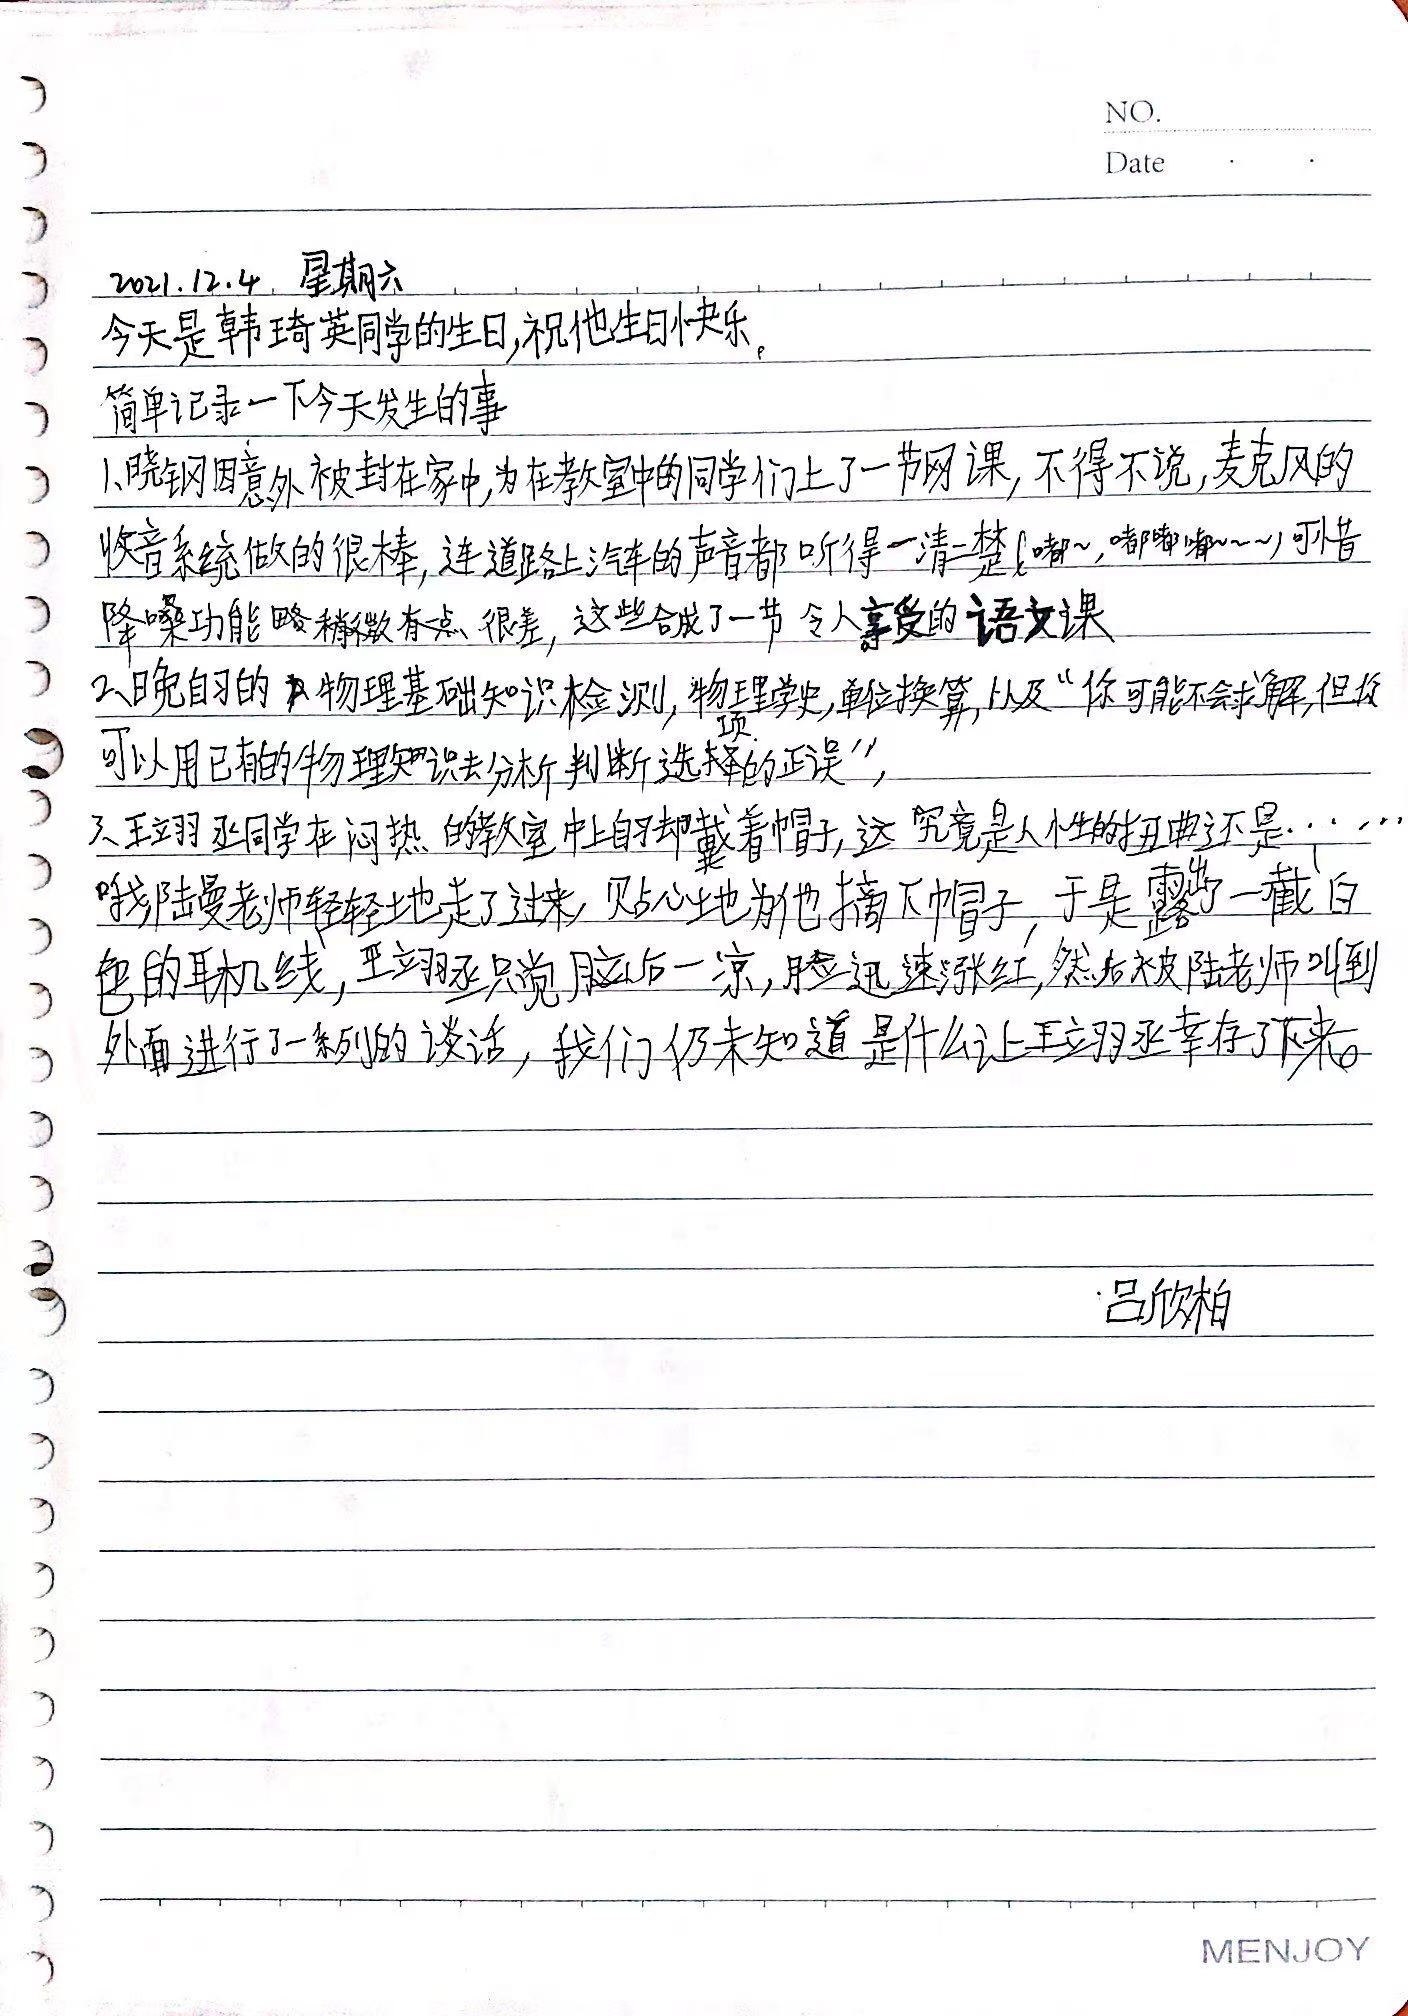 NO.
Date
2021.12.4 星期六
今天是韩琦英同学的生日,祝他生日快乐。
简单记录一下今天发生的事
1、晓钢因意外被封在家中,为在教室中的同学们上了一节网课,不得不说,麦克风的
收音系统做的很棒,连道路上汽车的声音都听得一清二楚(嘟~,嘟嘟嘟~~~),可惜
降噪功能略稍微有点很差,这些合成了一节令人享受的语文课
2、晚自习的物理基础知识检测,物理学史,单位换算,以及“你可能不会求解,但
可以用已有的物理知识去分析判断选择项的正误”,
3、王立羽丞同学在闷热的教室中上自习却戴着帽子,这究竟是人性的扭曲还是……
哦,陆曼老师轻轻地走了过来,贴心地为他摘下帽子,于是露出了一截白
色的耳机线,王立羽丞只觉脑后一凉,脸迅速涨红,然后被陆老师叫到
外面进行了一系列的谈话,我们仍未知道是什么让王立羽丞幸存了下来。
吕欣柏
MENJOY